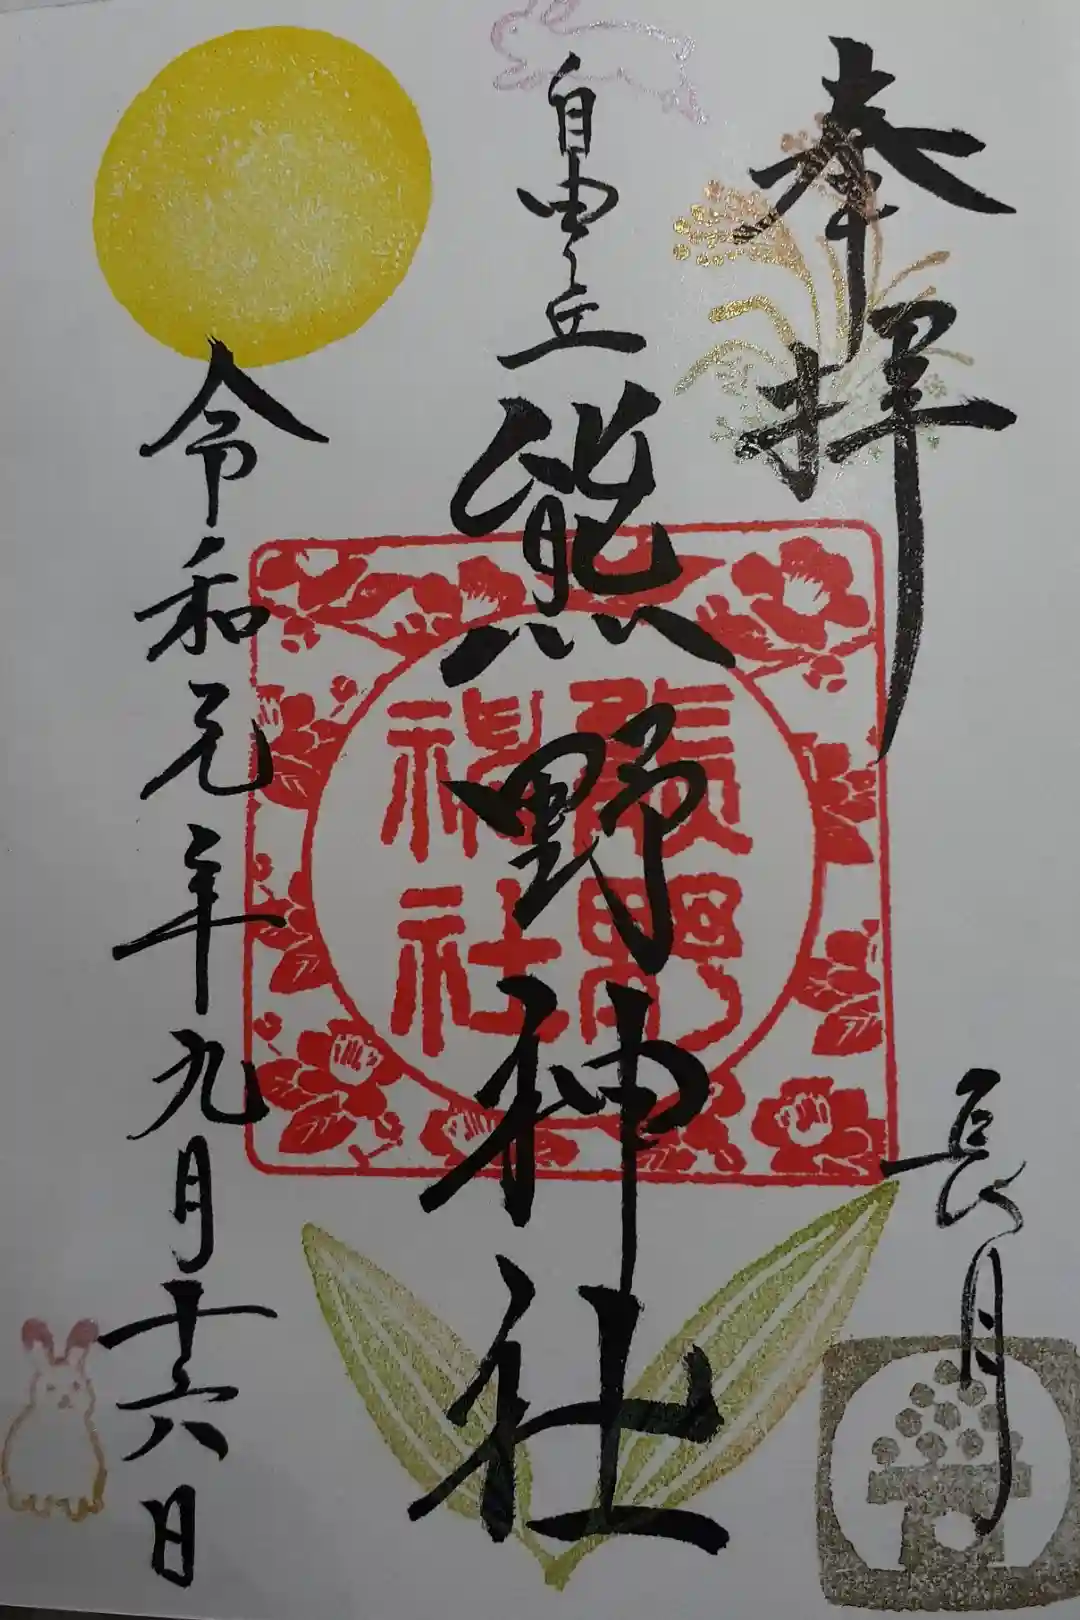 奉拝
長月
自由丘
熊野神社
熊野
神社
令和元年九月十六日